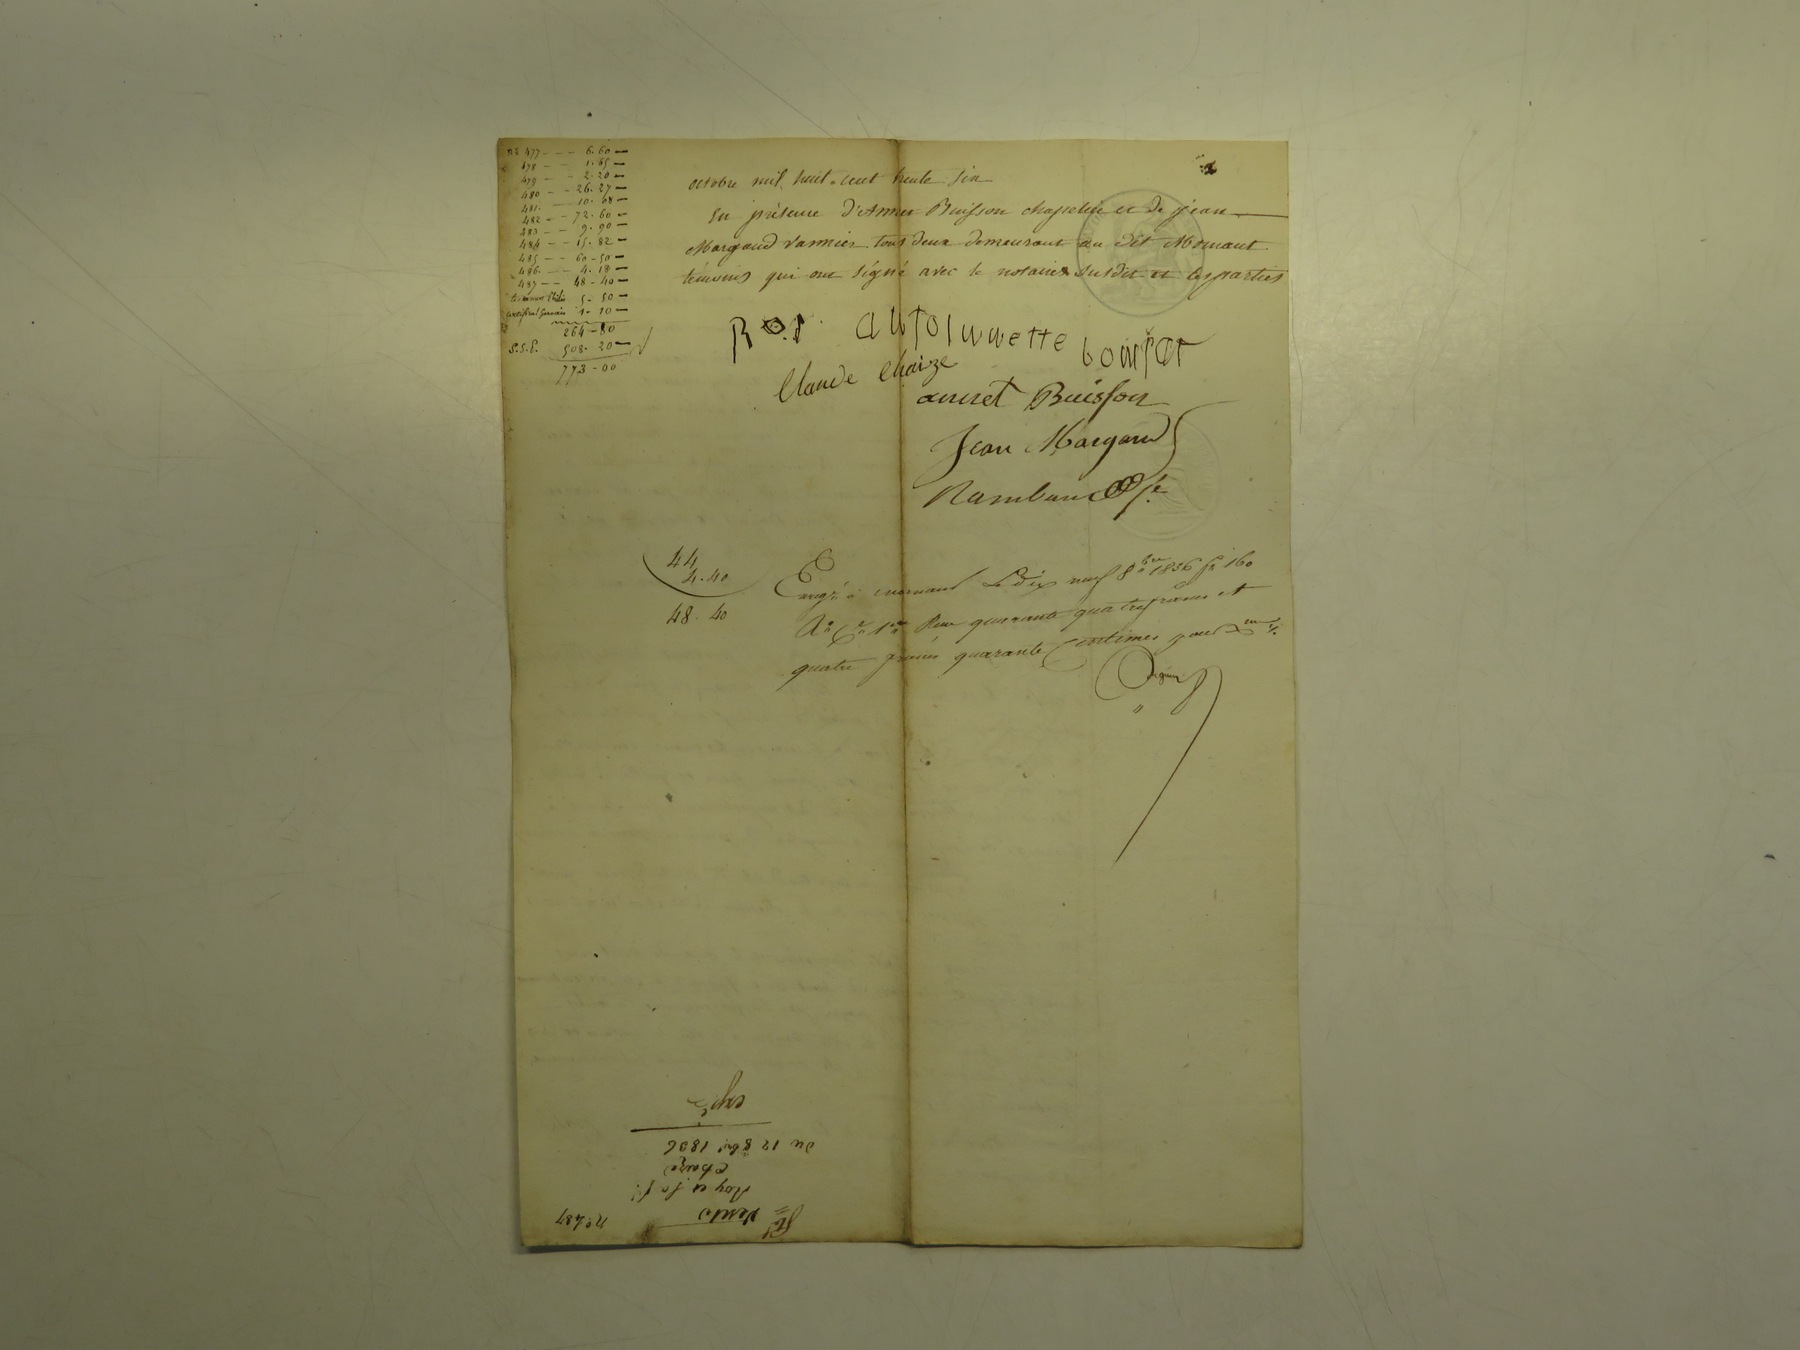 n° 477 - - - 6. 60 -
478 - - 1. 65 -
479 - - 2. 20 -
480 - - 26. 27 -
481. - - 10. 08 -
482 - - 72. 60 -
483 - - 9. 90 -
484 - - 15. 82 -
485 - - 60 - 50 -
486. - - 4. 18 -
487 - - 48 - 40 -
5 - 50 -
1 - 10 -
264 - 80
S.S.P. 508. 20 -
773 - 00
octobre mil huit cent trente six
En présence d'Annet Buisson chapelier et de Jean
Margaud vannier tous deux demeurant au dit Mornant
témoins qui ont signé avec le notaire susdit et les parties
Roi antoinnette bonjat
Claude Chaize
annet Buisson
Jean Margaud
Rambaud
44
4. 40
48. 40
Enregé à mornant Le dix neuf 8bre 1836 f° 160
Ro Co 1re Reçu quarante quatre francs et
quatre francs quarante Centimes pour Dme
n° 487
Vente
Roy et sa fe
Chaize
Du 12 8bre 1836
expé